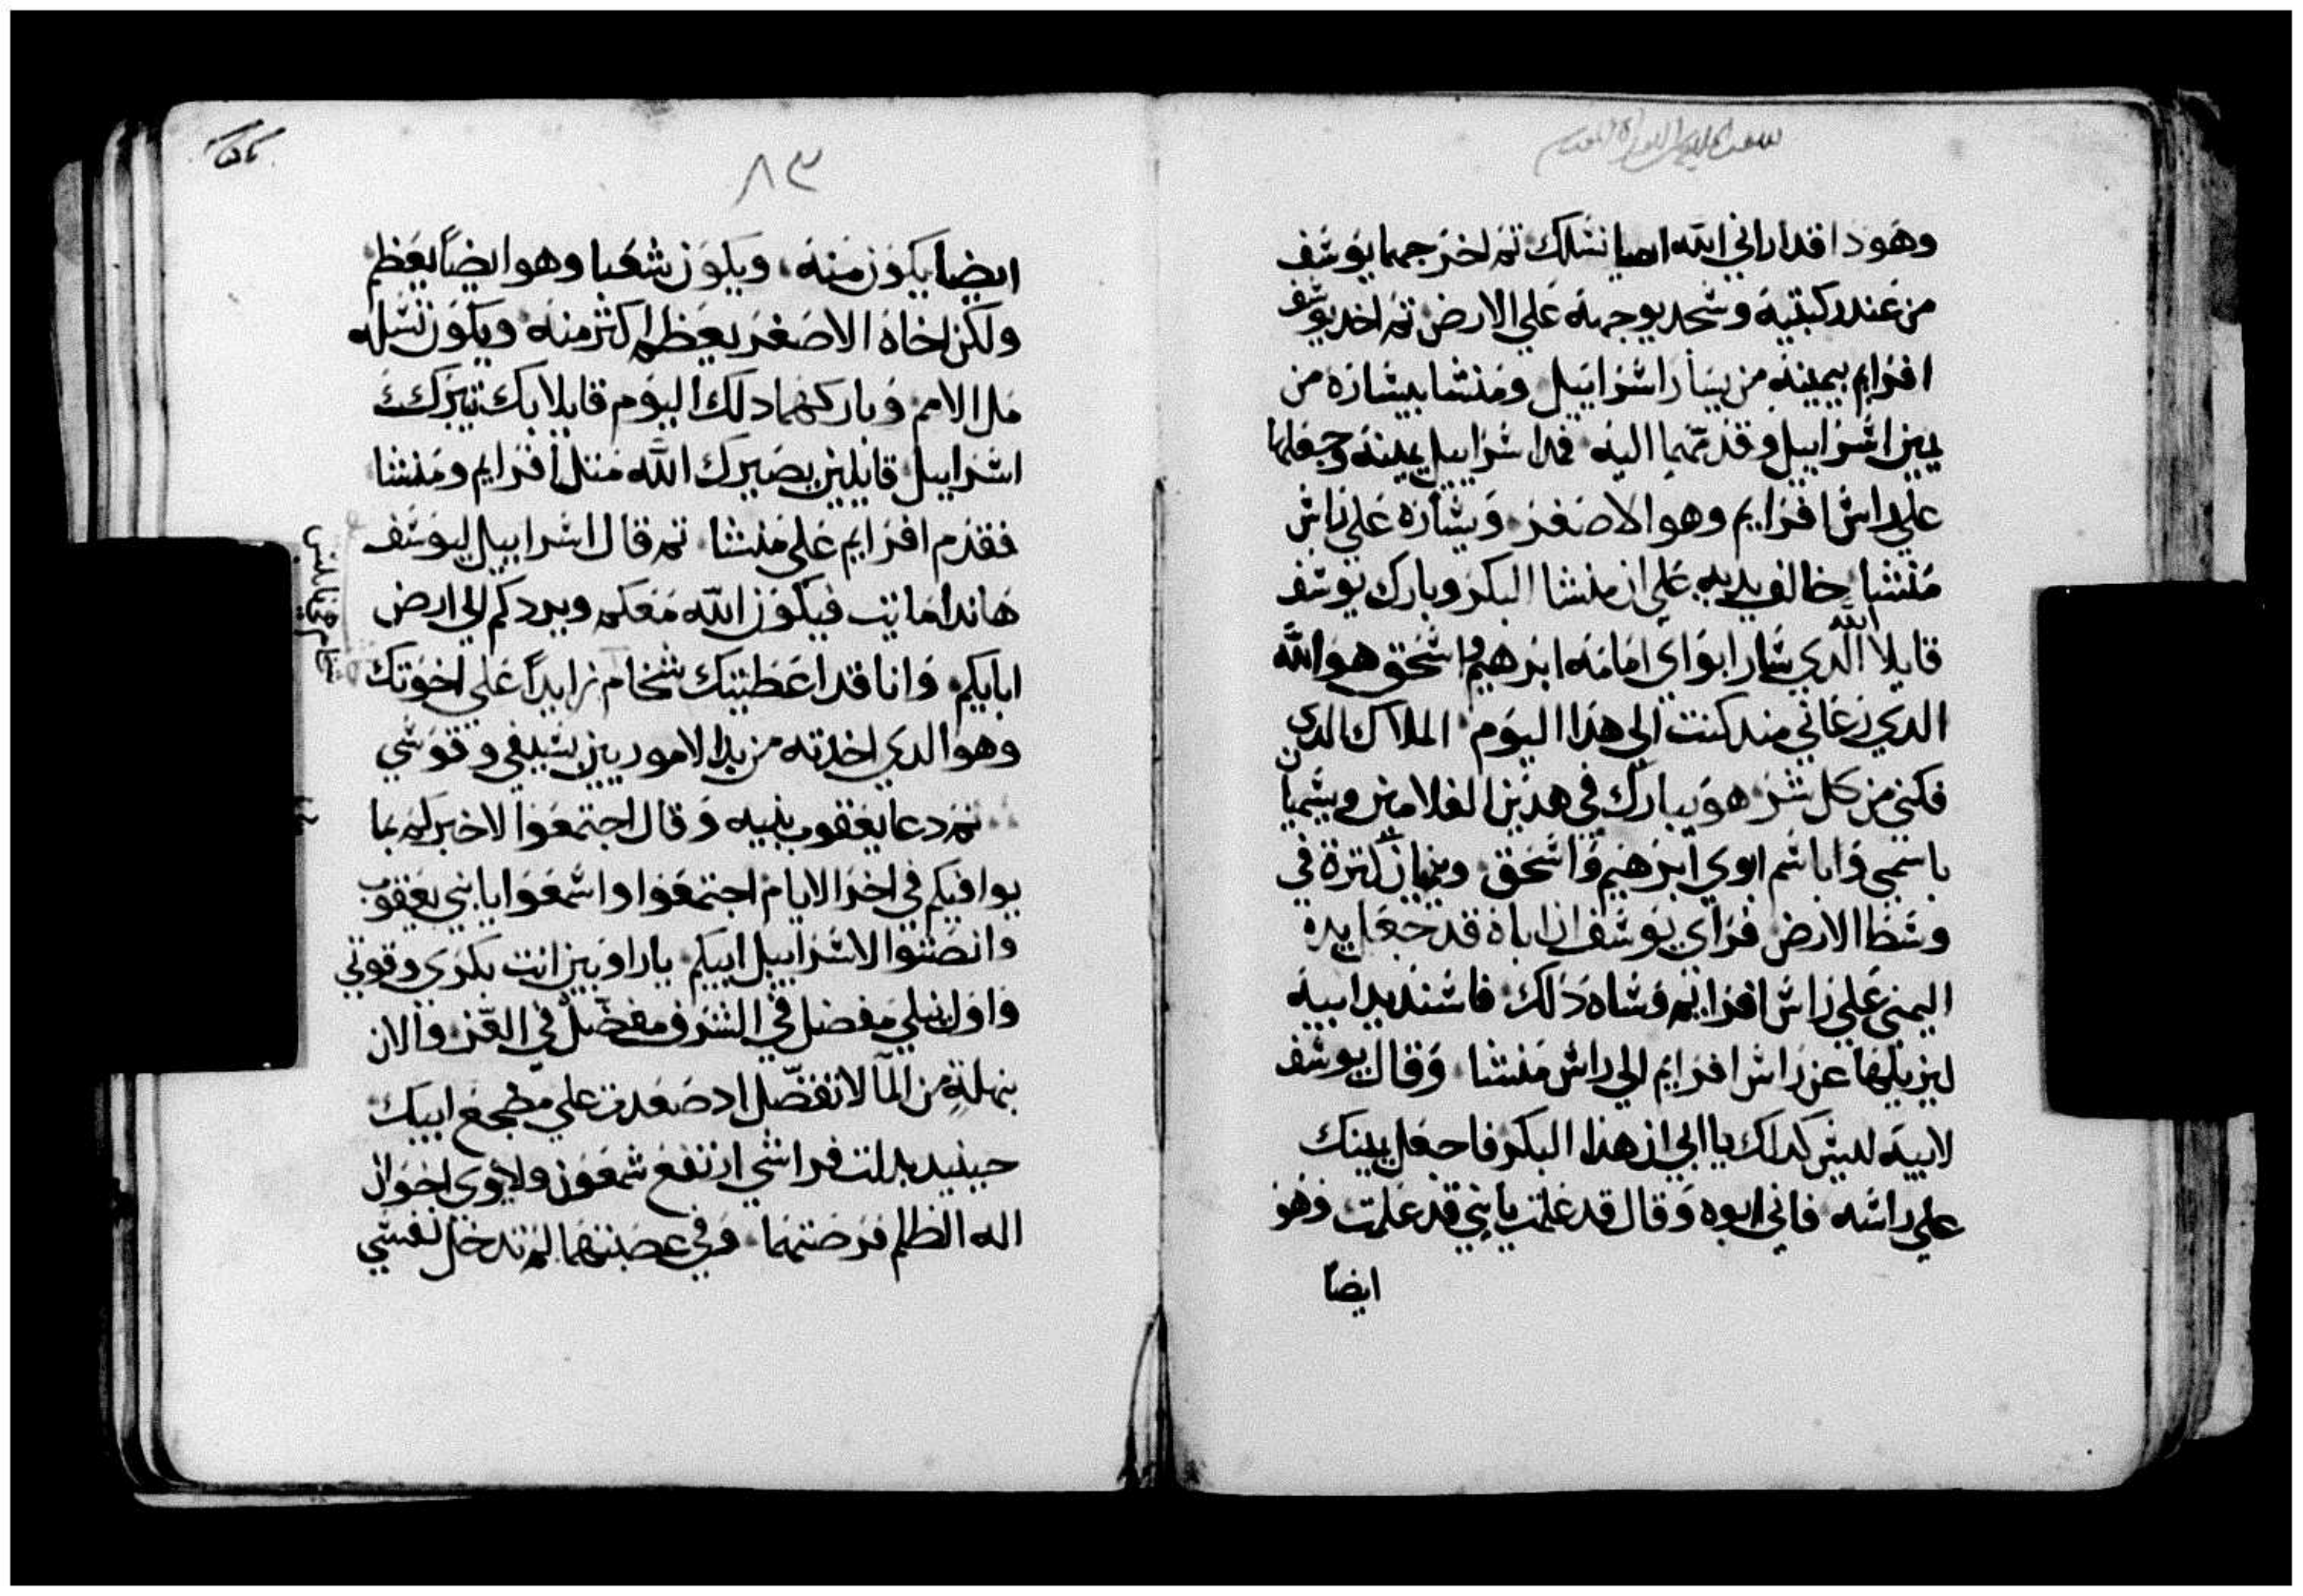 وهودا قد اراني الله ايضا نسلك ثم اخرجهما يوسف
من عند ركبتيه وسجد بوجهه علي الارض ثم اخد يوسف
افرايم بيمينه من يسار اسراييل ومنشا بيساره من
يمين اسراييل وقدمهما اليه فمد اسراييل يمينه وجعلها
علي راس افرايم وهو الاصغر ويساره علي راس
منشا خالف يديه علي ان منشا البكر وبارك يوسف
قايلا الله الدي سار ابواي امامه ابرهيم واسحق هو الله
الدي رعاني مند كنت الي هدا اليوم الملاك الدي
فكني من كل شر هو يبارك في هدين الغلامين ويسميان
باسمي وباسم ابوي ابرهيم واسحق وينميان كثرة في
وسط الارض فراي يوسف ان اباه قد جعل يده
اليمني علي راس افرايم فساه دلك فاسند يد ابيه
ليزيلها عن راس افرايم الي راس منشا وقال يوسف
لابيه ليس كداك يا ابي ان هدا البكر فاجعل يمينك
علي راسه فابي ابوه وقال قد علمت يا بني قد علمت وهو
ايضا
٨٣
ايضا يكون منه ويكون شعبا وهو ايضا يعظم
ولكن اخاه الاصغر يعظم اكثر منه ويكون نسله
ملا الامم وباركهما دلك اليوم قايلا بك يتبرك
اسراييل قايلين يصيرك الله مثل افرايم ومنشا
فقدم افرايم علي منشا ثم قال اسراييل ليوسف
هاندا مايت فيكون الله معكم ويردكم الي ارض
ابايكم وانا قد اعطيتك شخام زايدا علي اخوتك
وهو الدي اخدته من يد الاموريين بسيفي وقوسي
ثم دعا يعقوب بنيه وقال اجتمعوا لاخبركم بما
يوافيكم في اخر الايام اجتمعوا واسمعوا يا بني يعقوب
وانصتوا لاسراييل ابيكم ياراوبين انت بكري وقوتي
واول نيلي مفضل في الشرف ومفضل في العز والان
بنهلة من المآ لا تفضل اد صعدت علي مضجع ابيك
حينيد بدلت فراشي ارتفع شمعون ولاوي اخوان
اله الظلم فرصتهما وفي عصبتهما لم تدخل نفسي